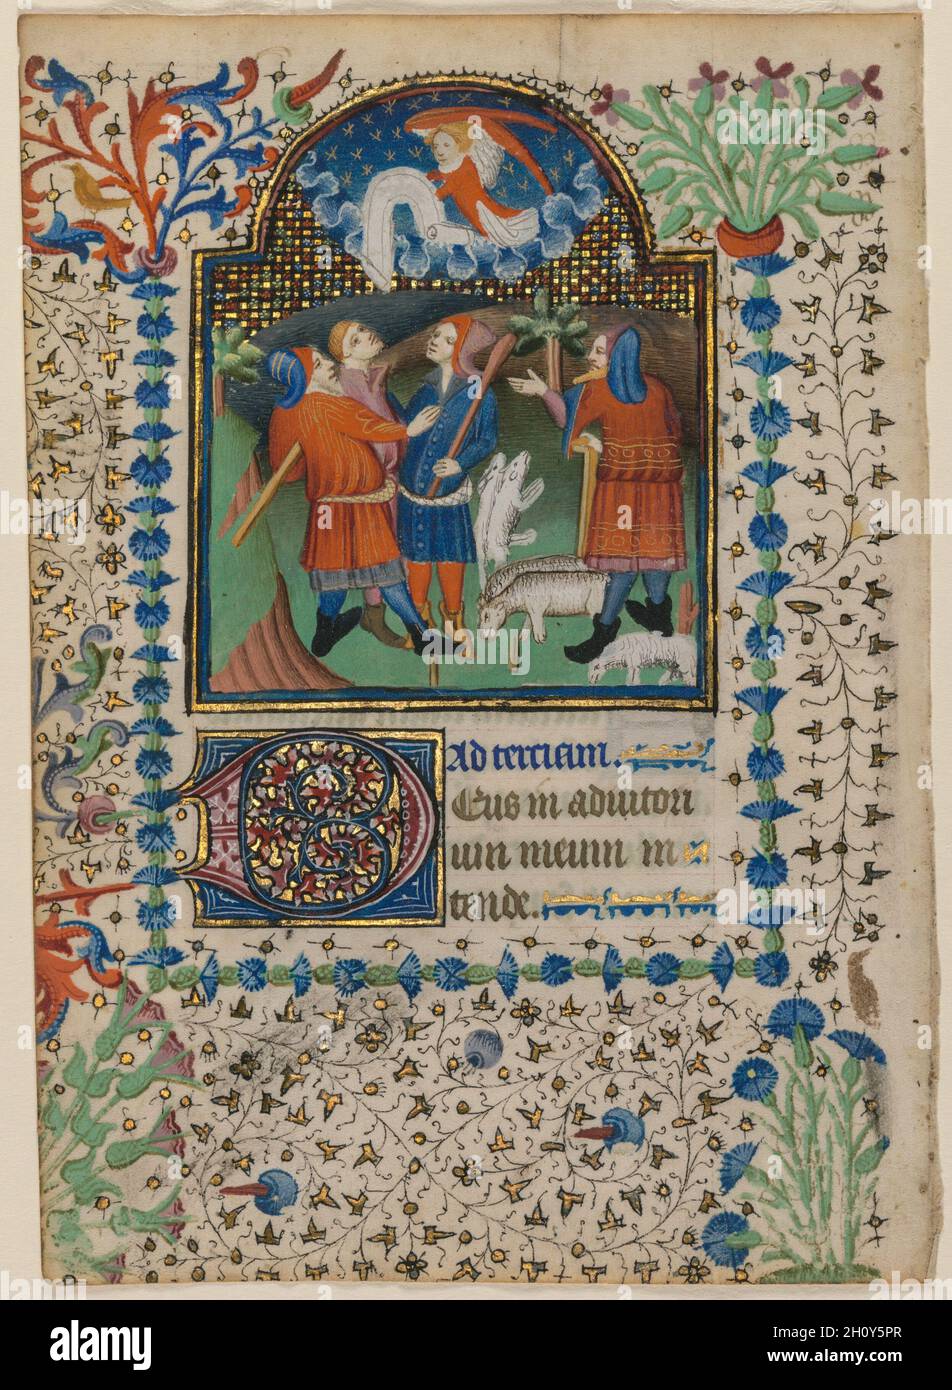 Ad terciam.
Deus in adiutori
um meum in
tende.
alamy
Image ID: 2H0Y5PR
www.alamy.com